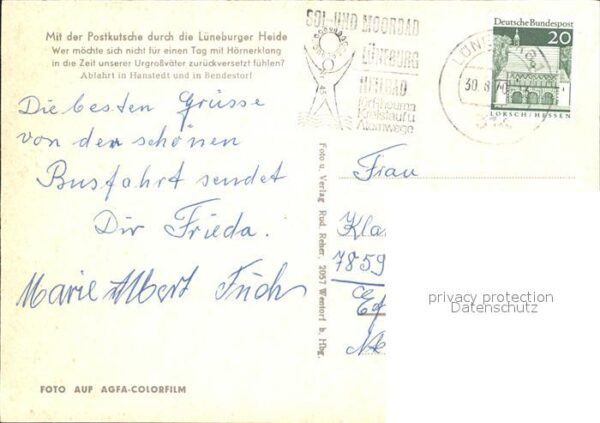 Mit der Postkutsche durch die Lüneburger Heide
Wer möchte sich nicht für einen Tag mit Hörnerklang
in die Zeit unserer Urgroßväter zurückversetzt fühlen?
Abfahrt in Hanstedt und in Bendestorf
Die besten Grüsse
von der schönen
Busfahrt sendet
Dir Frieda.
Marie Albert Fuchs
FOTO AUF AGFA-COLORFILM
Foto u. Verlag Rud. Reher, 2057 Wentorf b. Hbg.
SOL- UND MOORBAD
LÜNEBURG
HEILBAD
für Rheuma
Kreislauf u
Atemwege
30.8.70
Deutsche Bundespost
20
LORSCH/HESSEN
Frau
Kla
7859
privacy protection
Datenschutz